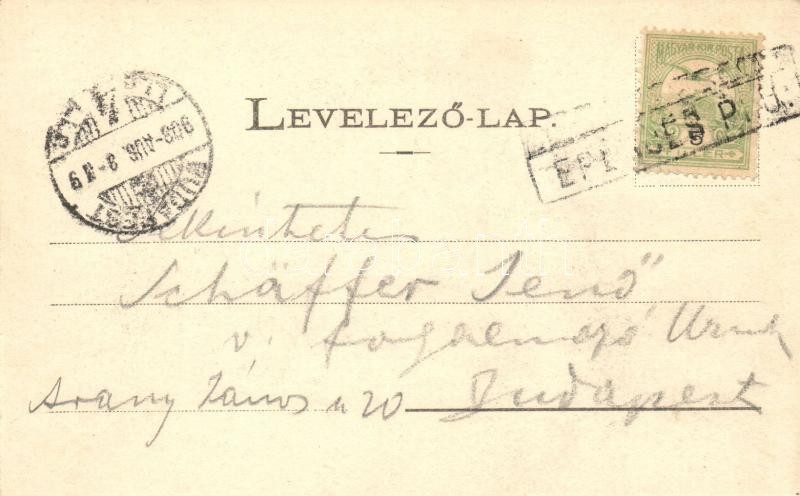 LEVELEZŐ-LAP.
MAGYAR KIR. POSTA
BUDAPEST
906 AUG. 8
EPL P.U.
Tekintetes
Schäffer Jenő
v. fogalmazó Urnak
Arany János u 20 Budapest